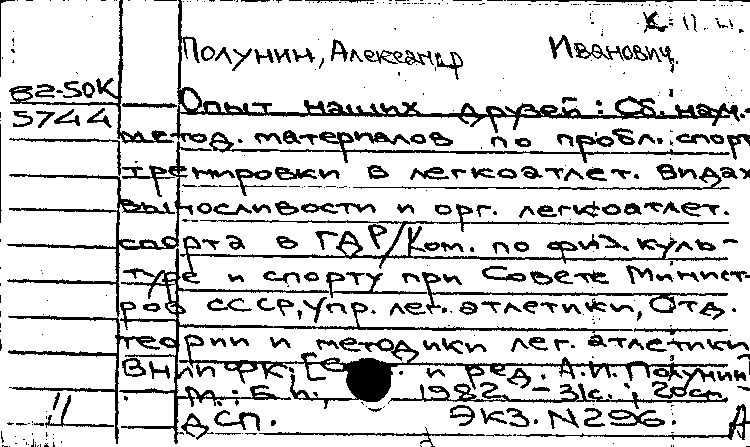 Полунин, Александр Иванович.
82-50К
5744
Опыт наших друзей: Сб. науч.-
метод. материалов по пробл. спорт
тренировки в легкоатлет. видах
выносливости и орг. легкоатлет.
спорта в ГДР/Ком. по физ. куль-
туре и спорту при Совете Минист-
ров СССР, Упр. лег. атлетики, Отд.
теории и методики лег. атлетики
ВНИИФК; [ . и ред. А.И. Полунин
М.: Б.и., 1982. - 31с.; 20см.
ДСП. Экз. N296.